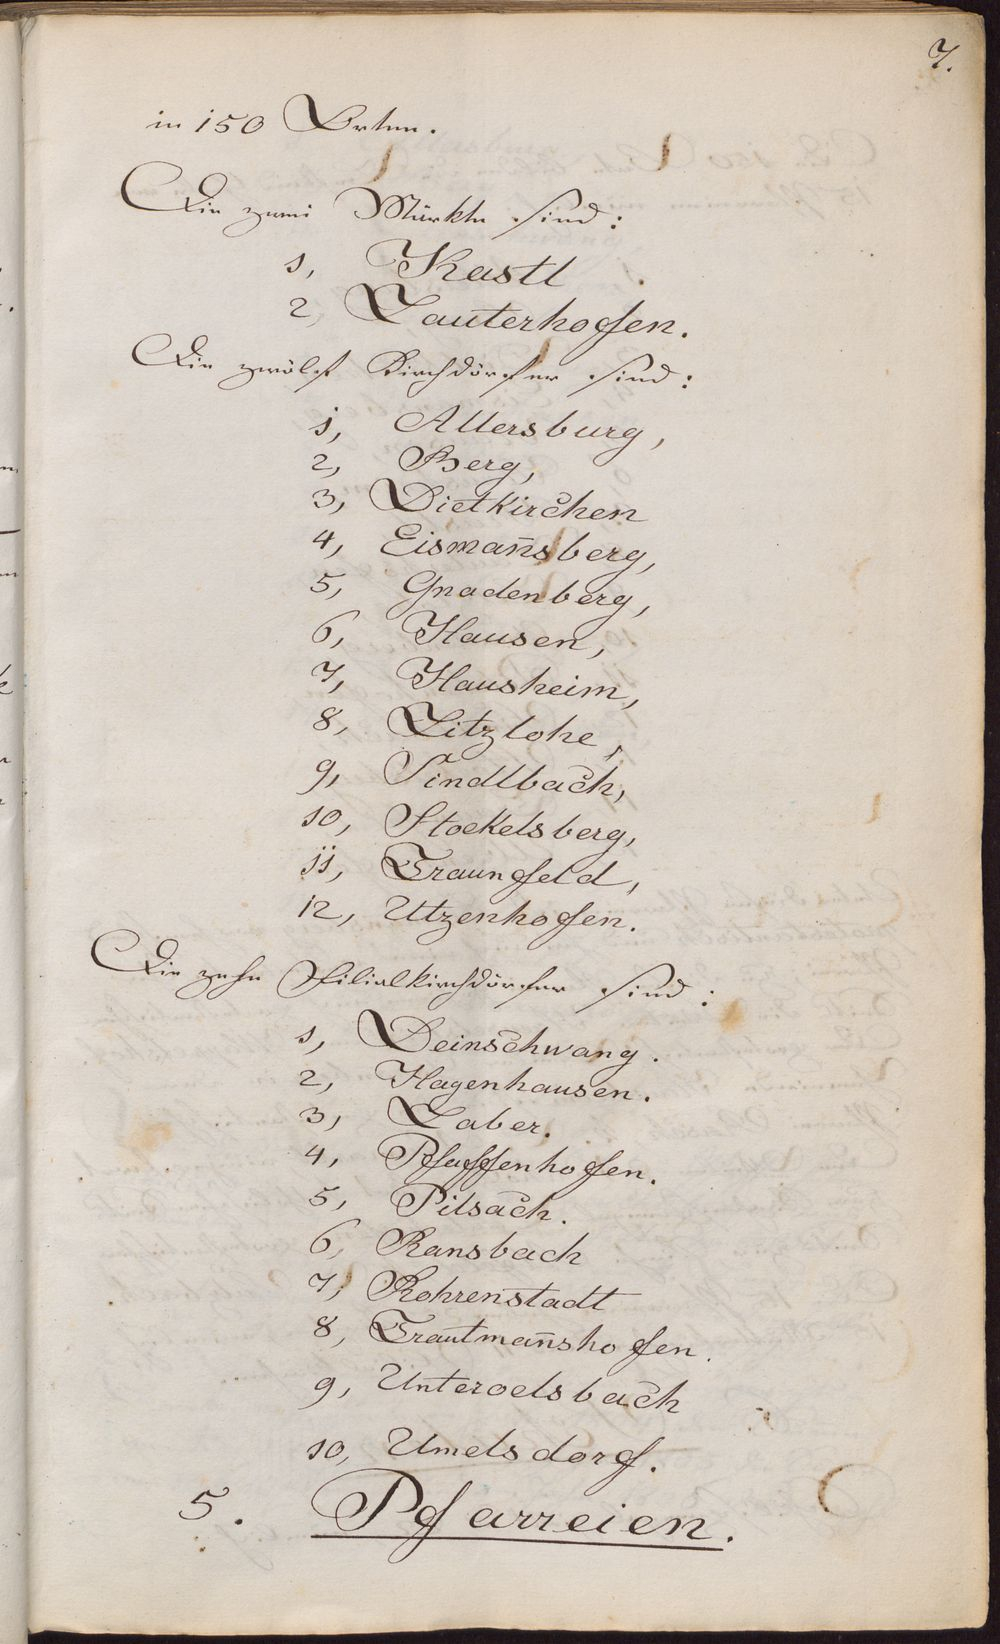 7.
in 150 Orten.
Die zwei Märkte sind:
1, Kastl
2, Lauterhofen.
Die zwölf Kirchdörfer sind:
1, Allersburg,
2, Berg,
3, Dietkirchen
4, Eisman̄sberg,
5, Gnadenberg,
6, Hausen,
7, Hausheim,
8, Litzlohe,
9, Sindlbach,
10, Stoekelsberg,
11, Traunfeld,
12, Utzenhofen.
Die zehn Filialkirchdörfer sind:
1, Deinschwang.
2, Hagenhausen.
3, Laber.
4, Pfaffenhofen.
5, Pilsach.
6, Ransbach
7, Rohrenstadt
8, Trautman̄shofen.
9, Unteroelsbach
10, Umelsdorf.
5. Pfarreien.